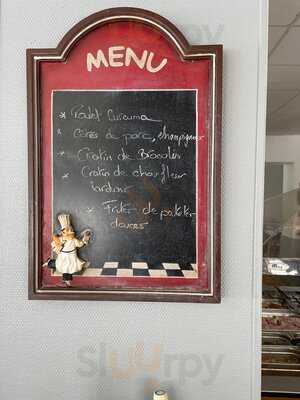 MENU
* Poulet Curcuma
* Côtes de porc, champignons
* Gratin de Brocolis
* Gratin de choufleur
lardons
* Frites de patates
douces
Sluurpy